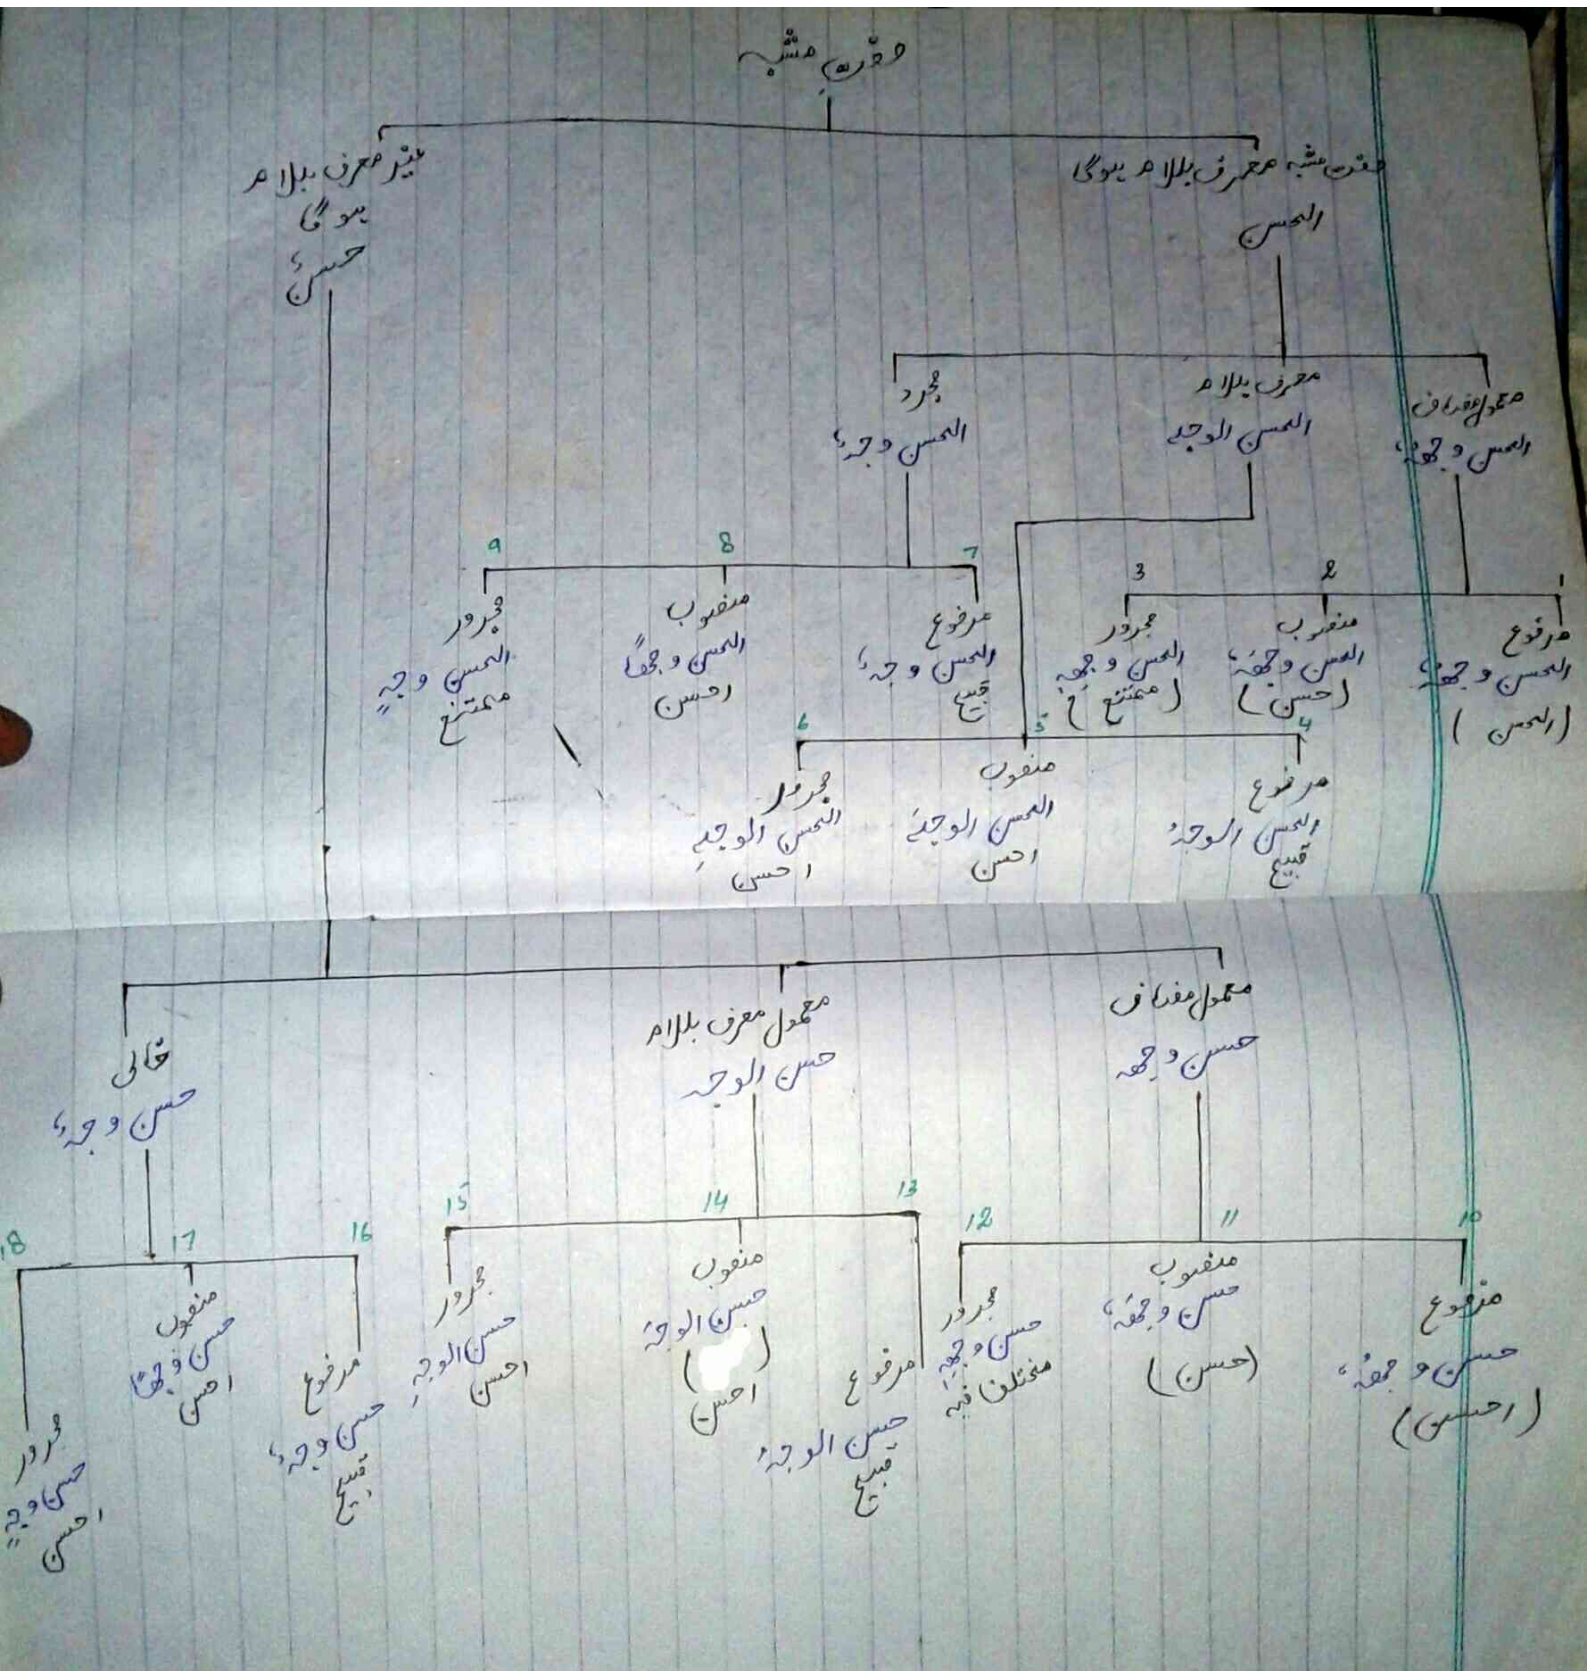 صفت مشبہ
صفت مشبہ معرف باللام ہوگا
الحسن
غیر معرف باللام
ہوگا
حسنٌ
معمول مضاف
الحسن وجھہٗ
معرف باللام
الحسن الوجہ
مجرد
الحسن وجہٌ
1
مرفوع
الحسن وجھہٗ
(احسن)
2
منصوب
الحسن وجھَہٗ
(حسن)
3
مجرور
الحسن وجھِہٖ
(ممتنع)
4
مرفوع
الحسن الوجہُ
قبیح
5
منصوب
الحسن الوجہَ
احسن
6
مجرور
الحسن الوجہِ
احسن
7
مرفوع
الحسن وجہٌ
قبیح
8
منصوب
الحسن وجھاً
احسن
9
مجرور
الحسن وجہٍ
ممتنع
معمول مضاف
حسن وجھہ
معمول معرف باللام
حسن الوجہ
خالی
حسن وجہٌ
10
مرفوع
حسن وجھُہٗ
(احسن)
11
منصوب
حسن وجھَہٗ
(حسن)
12
مجرور
حسن وجھِہٖ
مختلف فیہ
13
مرفوع
حسن الوجہُ
قبیح
14
منصوب
حسن الوجہَ
( )
احسن
15
مجرور
حسن الوجہِ
احسن
16
مرفوع
حسن وجہٌ
قبیح
17
منصوب
حسن وجھاً
احسن
18
مجرور
حسن وجہٍ
احسن